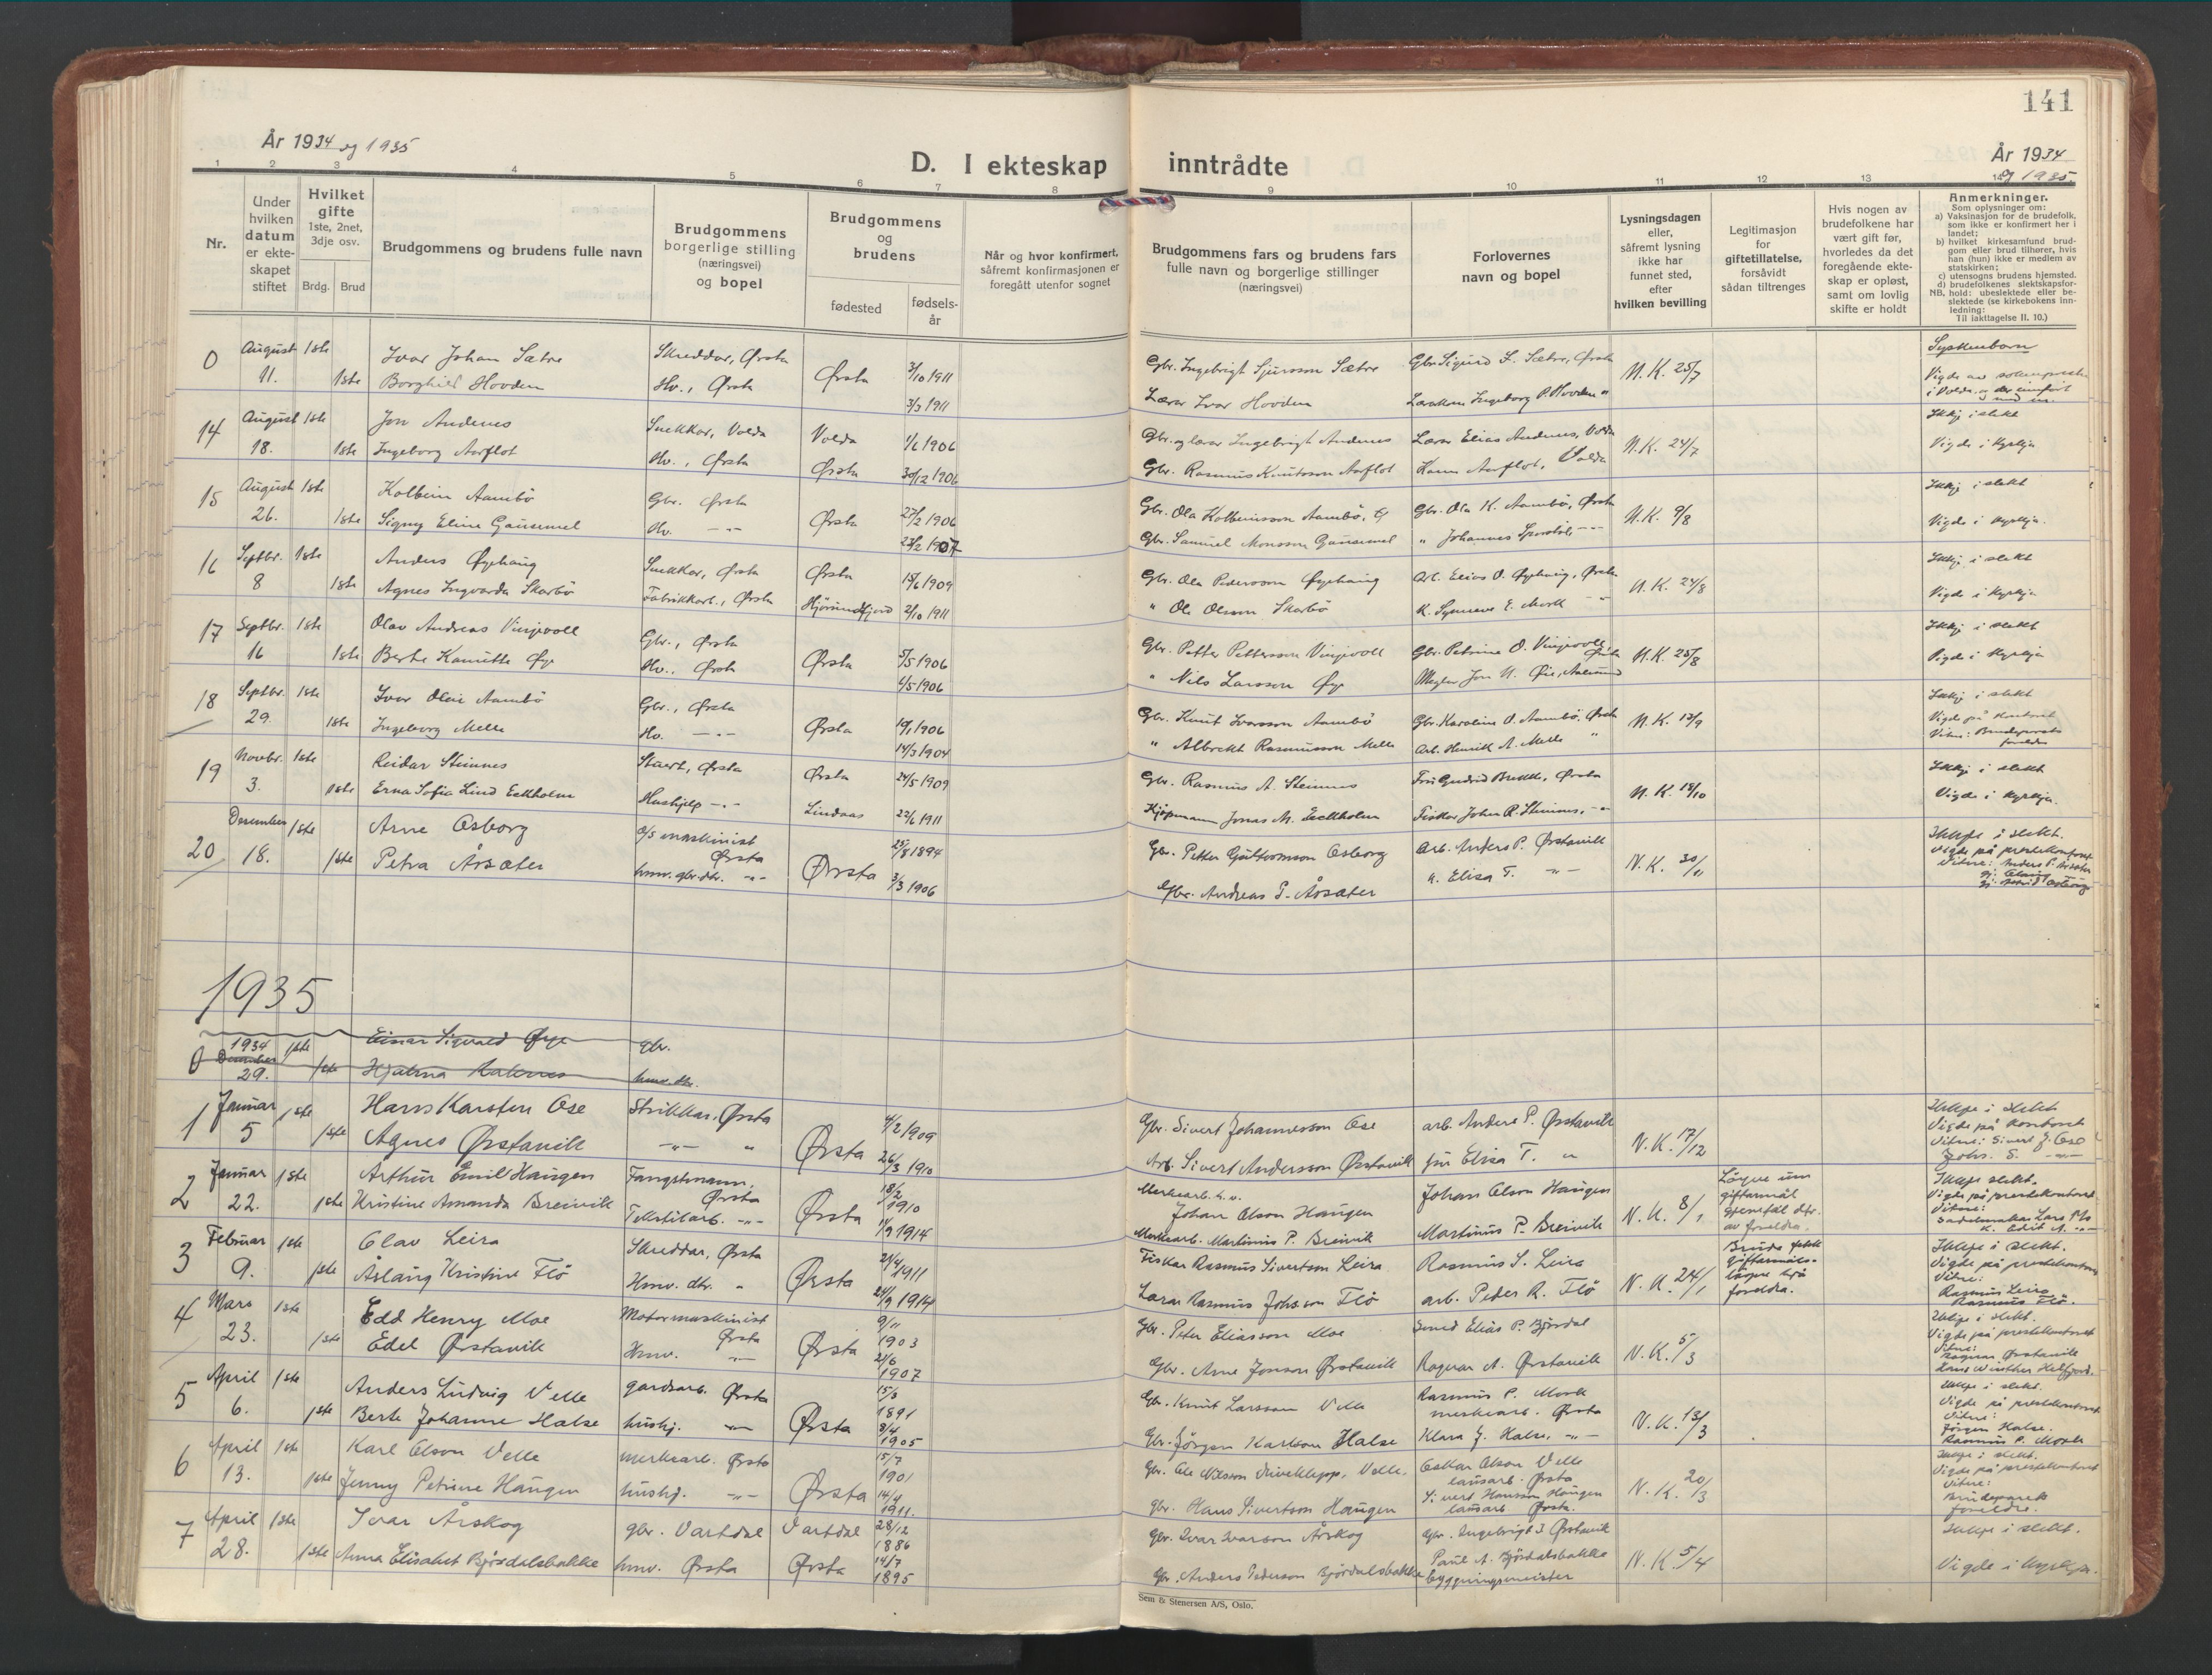 141
År 1934 og 1935
D. I ekteskap inntrådte
År 1934 og 1935.
1 2 3 4 5 6 7 8 9 10 11 12 13 14
Nr.
Under hvilken datum er ekteskapet stiftet
Hvilket gifte 1ste, 2net, 3dje osv.
Brdg. Brud
Brudgommens og brudens fulle navn
Brudgommens borgerlige stilling (næringsvei) og bopel
Brudgommens og brudens
fødested
fødselsår
Når og hvor konfirmert, såfremt konfirmasjonen er foregått utenfor sognet
Brudgommens fars og brudens fars fulle navn og borgerlige stillinger (næringsvei)
Forlovernes navn og bopel
Lysningsdagen eller, såfremt lysning ikke har funnet sted, efter hvilken bevilling
Legitimasjon for giftetillatelse, forsåvidt sådan tiltrenges
Hvis nogen av brudefolkene har vært gift før, hvorledes da det foregående ekteskap er opløst, samt om lovlig skifte er holdt
Anmerkninger.
Som oplysninger om:
a) Vaksinasjon for de brudefolk, som ikke er konfirmert her i landet;
b) hvilket kirkesamfund brudgom eller brud tilhører, hvis han (hun) ikke er medlem av statskirken;
c) utensogns brudens hjemsted.
d) brudefolkenes slektskapsforhold: ubeslektede eller beslektede (se kirkebokens innledning:
NB. Til iakttagelse II. 10.)
0 August 1ste Ivar Johan Sætre Skreddar, Ørsta Ørsta 3/10 1911 Gbr. Ingebrigt Sjursson Sætre Gbr. Sigurd I. Sætre, Ørsta N.K. 25/7 Syskenborn
11. 1ste Borghild Hovden Hv., Ørsta 3/3 1911 Lærar Ivar Hovden Ingeborg P. Hovden " Vigde av
i Volda og
14 August 1ste Jon Andenes Snekkar, Volda Volda 1/6 1906 Gbr. og lærar Ingebrigt Andenes Lærar Elias Andenes, Volda N.K. 24/7 Ikkj i slekt
18. 1ste Ingeborg Aarflot Hv., Ørsta Ørsta 30/12 1906 Gbr. Rasmus Knutsson Aarflot Aarflot, Volda Vigde i kyrkja
15 August 1ste Kolbein Aambö Gbr. Ørsta Ørsta 27/2 1906 Gbr. Ola Kolbeinsson Aambö, Gbr. Ola K. Aambö, Ørsta N.K. 9/8 Ikkj i slekt
26. 1ste Signy Eline Gausemel Hv. -"- 23/2 1907 Gbr. Samuel Monsson Gausemel " Johannes -"- Vigde i kyrkja.
16 Septbr. 1ste Anders Øyehaug Snekkar, Ørsta Ørsta 15/6 1909 Gbr. Ola Pedersson Øyehaug Arb. Elias O. Øyehaug, Ørsta N.K. 24/8 Ikkj i slekt
8 1ste Agnes Ingvarda Skarbö Fabrikkarb., Ørsta Hjörundfjord 2/10 1911 " Ole Olsson Skarbö K. Synneve E. Mork -"- Vigde i kyrkja
17 Septbr. 1ste Olav Andreas Vinjevoll Gbr., Ørsta Ørsta 5/5 1906 Gbr. Petter Pettersson Vinjevoll Gbr. Petrine O. Vinjevoll, Ørsta N.K. 25/8 Ikkj i slekt
16 1ste Berte Kamitte Øye Hv., Ørsta 4/5 1906 " Nils Larsson Øye Megler Jon N. Øie, Aalesund Vigde i kyrkja
18 Septbr. 1ste Ivar Olai Aambö Gbr., Ørsta Ørsta 19/1 1906 Gbr. Knut Ivarsson Aambö Gbr. Karoline O. Aambö, Ørsta N.K. 13/9 Ikkj i slekt
29. 1ste Ingeborg Melle Hv. -"- 14/3 1904 " Albrekt Rasmusson Melle Arb. Henrik A. Melle " Vigde på kontoret
Vitne: Brudeparets foreldre
19 Novbr. 1ste Reidar Steinnes Ørsta Ørsta 24/5 1909 Gbr. Rasmus A. Steinnes Gudrid Brekk, Ørsta N.K. 18/10 Ikkj i slekt
3. 1ste Erna Sofie Lind Eckholm Hushjelp -"- Lindaas 22/6 1911 Kjöpmann Jonas M. Eeckholm Fiskar Johan R. Steinnes, -"- Vigde i kyrkja.
20 Desember 1ste Arne Osborg maskinist Ørsta Ørsta 25/8 1894 Gbr. Petter Osborg Arb. Anders P. Ørstavik N.K. 30/11 Ikkje i slekt.
18. 1ste Petra Årsæter hmv. gbr. dtr. -"- 3/3 1906 Gbr. Andreas P. Årsæter K. Elisa T. -"- Vigde på prestekontoret
Vitne: Anders P. Årsæter
1935
0 1934 Desember 29. 1ste Einar Sigvald Øye gbr.
1ste Hjalma Raknes hmv. dtr.
1 Januar 1ste Hans Karsten Ose Strikkar, Ørsta Ørsta 4/2 1909 Gbr. Sivert Johannesson Ose arb. Anders P. Ørstavik N.K. 17/12 Ikkje i slekt
5 1ste Agnes Ørstavik -"- " 26/3 1910 Arb. Sivert Andersson Ørstavik frú Elisa T. " Vigde på kontoret
Vitne: Sivert J. Ose
Johs. S. -"-
2 Januar 1ste Arthur Emil Haugen Fangstmann, Ørsta Ørsta 18/2 1910 Merkearb. Johan Olson Haugen Johan Olson Haugen N.K. 8/1 Löyve um giftarmål av foreldra. Ikkje slekt.
22. 1ste Kristine Amanda Breivik Tekstilarb. -"- 11/9 1914 Merkearb. Martinus P. Breivik Martinus P. Breivik Vigde på prestekontoret
Vitne: Sadelmakar Lars Mo
3 Februar 1ste Olav Leira Skreddar, Ørsta Ørsta 21/4 1911 Fiskar Rasmus Sivertson Leira Rasmus S. Leira N.K. 24/1 giftarmåls- löyve frå foreldra. Ikkje i slekt.
9. 1ste Åslaug Kristine Flö Hmv. dtr. " 24/9 1914 Lærar Rasmus Johs.son Flö arb. Peder R. Flö Vigde på prestekontoret
Vitne: Rasmus Leira
Rasmus Flö.
4 Mars 1ste Edd Henry Moe Motormaskinist Ørsta Ørsta 9/11 1903 Gbr. Peter Eliasson Moe Smed Elias P. Björdal N.K. 5/3 Ikkje i slekt.
23. 1ste Edel Ørstavik Hmv. -"- 21/6 1907 Gbr. Arne Jonson Ørstavik Ragnar A. Ørstavik Vigde på prestekontoret
Vitne: Ragnar Ørstavik
5 April 1ste Anders Ludvig Velle gardsarb. Ørsta Ørsta 15/3 1891 Gbr. Knut Larsson Velle Rasmus P. Mork merkearb. Ørsta N.K. 13/3 Ikkje i slekt.
6. 1ste Berte Johanne Halse hushj. -"- 8/4 1905 Gbr. Jörgen Karlson Halse Klara J. Halse, -"- Vigde på prestekontoret
Vitne: Jörgen Halse.
Rasmus P. Mork
6 April 1ste Karl Olson Velle merkearb. Ørsta Ørsta 15/7 1901 Gbr. Ole Nilsson Velle. Oskar Olson Velle lausarb. Ørsta N.K. 20/3 Ikkje i slekt.
13. 1ste Jenny Petrine Haugen hushj. -"- 14/4 1911. gbr. Hans Sivertson Haugen Sivert Hansson Haugen lausarb. Ørsta. Vigde på prestekontoret
Vitne: Brudeparets foreldre.
7 April 1ste Ivar Årskog gbr. Vartdal Vartdal 28/12 1886 Gbr. Ivar Ivarson Årskog Gbr. Ingebrigt I Ørstavik N.K. 5/4 Ikkje i slekt.
28. 1ste Anna Elisabet Björdalsbakke hmv. Ørsta Ørsta 14/7 1895 Gbr. Anders Pederson Björdalsbakke Paul A. Björdalsbakke byggningsmeister Vigde i kyrkja.
Sem & Stenersen A/S, Oslo.